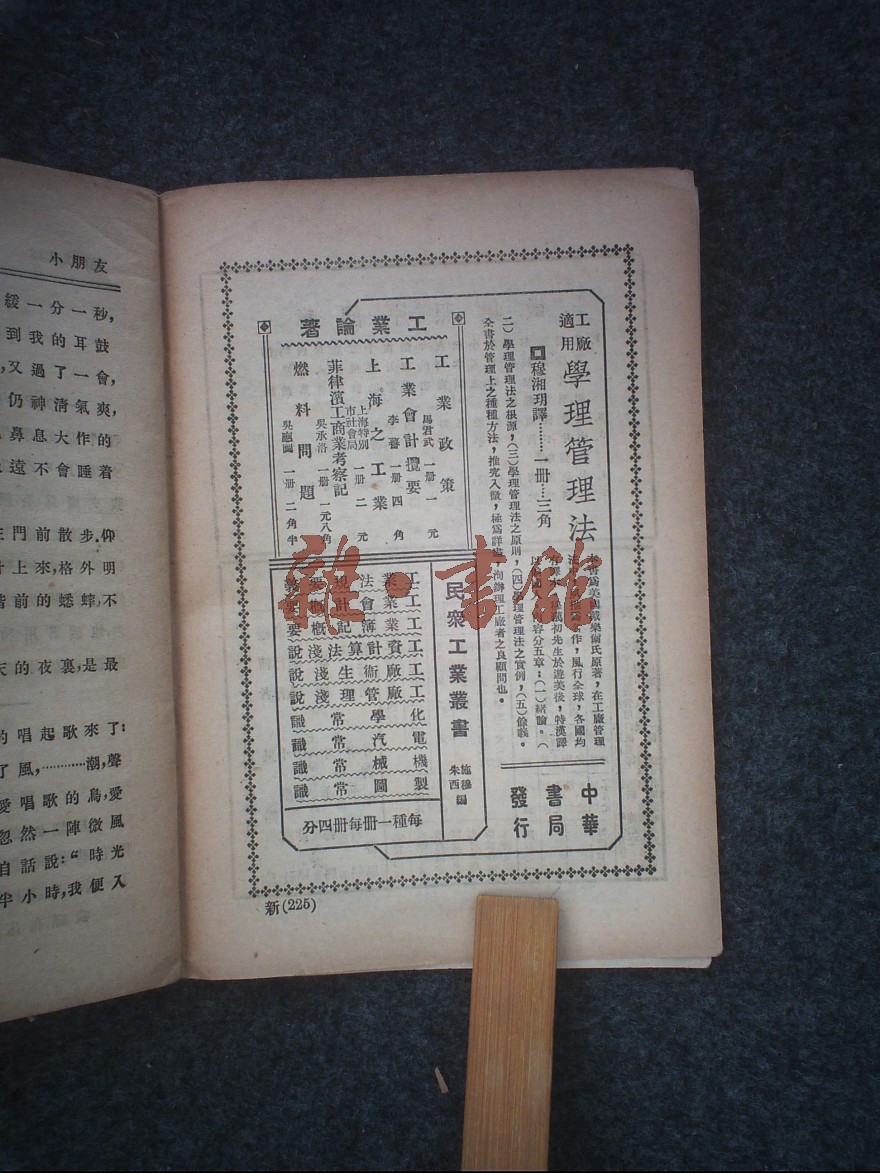 小朋友
緩一分一秒,
到我的耳鼓
,又過了一會,
仍神清氣爽,
鼻息大作的
遠不會睡着
門前散步,仰
上來,格外明
階前的蟋蟀,不
天的夜裏,是最
的唱起歌來了:
了風,…………潮,聲
愛唱歌的鳥,愛
忽然一陣微風
自話說:“時光
半小時,我便入
工廠適用
學理管理法
穆湘玥譯………一冊…三角
書爲美國戴樂爾氏原著,在工廠管理
作,風行全球,各國均
初先生於遊美後,特漢譯
內容分五章:(一)緒論。(
二)學理管理法之根源,(三)學理管理法之原則,(四)學理管理法之實例,(五)餘義。
全書於管理上之種種方法,推究入微,極爲詳盡,洵辦理工廠者之良顧問也。
中華書局發行
工業論著
工業政策 馬君武 一册 一元
工業會計攬要 李 一册 四角
上海之工業 上海特別市社會局 一册 二元
菲律濱工商業考察記 吳承洛 一册 一元八角
燃料問題 吳 一册 二角半
民衆工業叢書
施穆朱西編
工業法規要義
工業會計概要
工業簿記概要
工費計算法淺說
工廠衛生淺說
工廠管理淺說
化學常識
電汽常識
機械常識
製圖常識
每種一冊每冊四分
新(225)
雜·書館